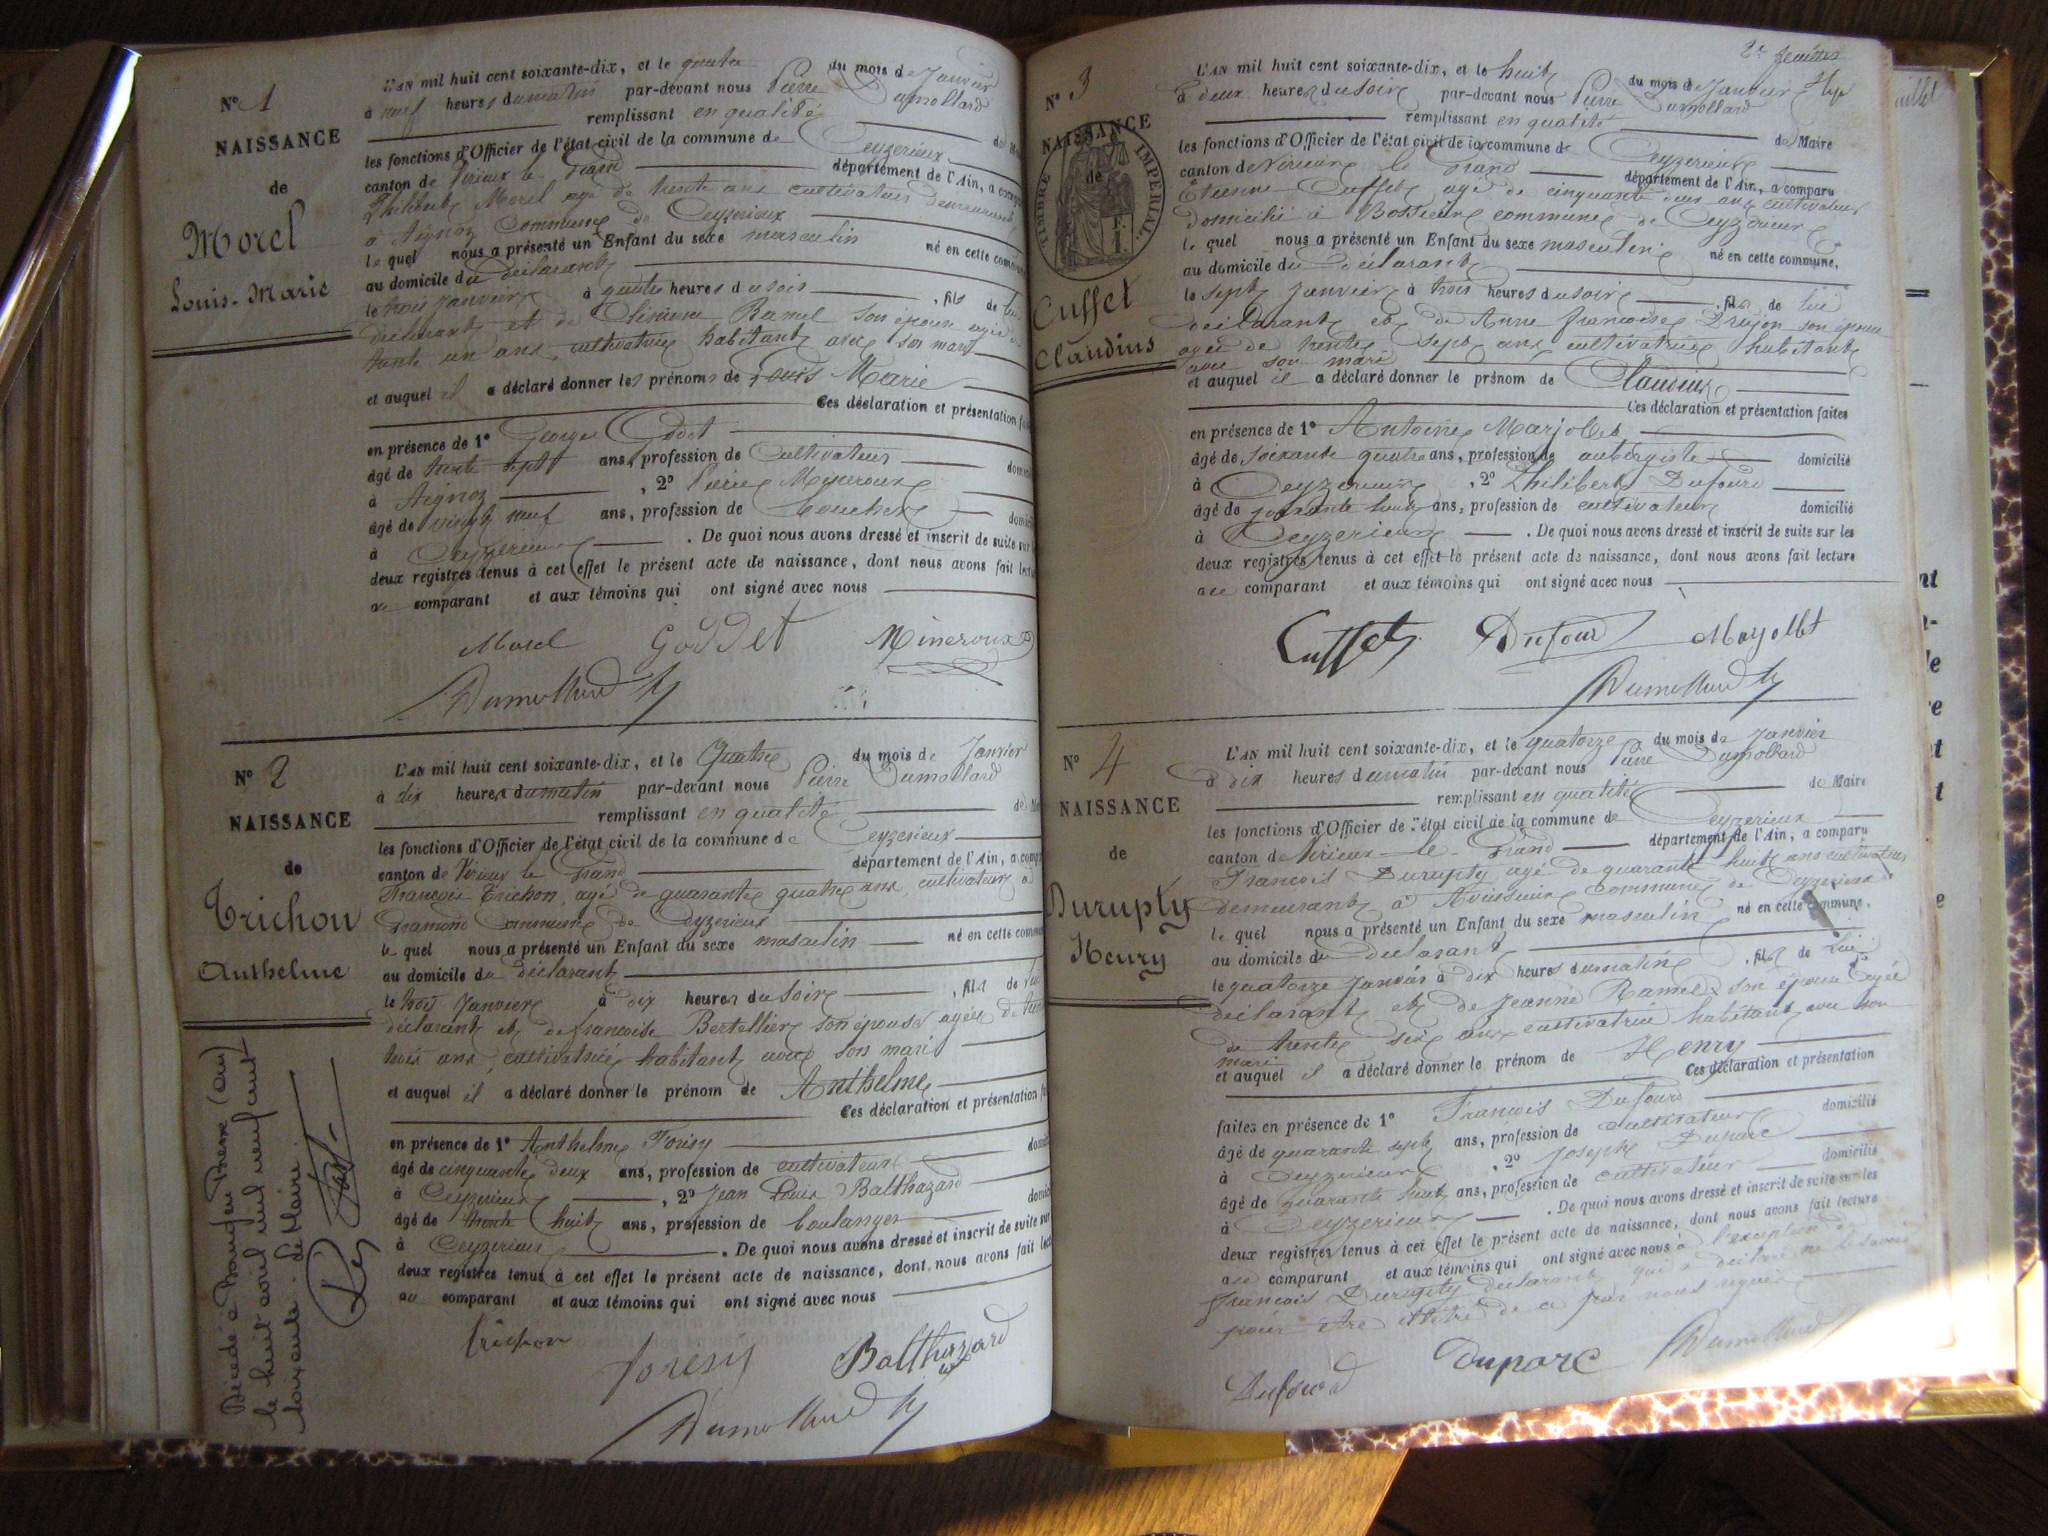 N° 1
NAISSANCE
de
Morel
Louis-Marie
L'AN mil huit cent soixante-dix, et le quatre du mois de Janvier
à neuf heures du matin par-devant nous Pierre Dumollard
remplissant en qualité de
les fonctions d'Officier de l'état civil de la commune de Ceyzerieux
canton de Virieux le Grand département de l'Ain, a
Philibert Morel agé de trente ans cultivateur demeurant
à Aignoz Commune de Ceyzerieux
le quel nous a présenté un Enfant du sexe masculin né en cette
au domicile du déclarant
le trois Janvier à quatre heures du soir, fils de lui
déclarant et de Ramel son épouse agée de
trente un ans, cultivatrice habitant avec son mari
et auquel il a déclaré donner les prénoms de Louis Marie
Ces déclaration et présentation
en présence de 1° Georges Godet
âgé de trente sept ans, profession de Cultivateur
à Aignoz, 2° Pierre
âgé de vingt neuf ans, profession de boucher
à Ceyzerieux. De quoi nous avons dressé et inscrit de suite sur
deux registres tenus à cet effet le présent acte de naissance, dont nous avons fait
au comparant et aux témoins qui ont signé avec nous
Morel Goddet Mineroux
Dumollard
N° 2
NAISSANCE
de
Trichon
Anthelme
Décédé à
le huit avril mil neuf cent
soixante. Le Maire
L'AN mil huit cent soixante-dix, et le Quatre du mois de Janvier
à dix heures du matin par-devant nous Pierre Dumollard
remplissant en qualité de
les fonctions d'Officier de l'état civil de la commune de Ceyzerieux
canton de Virieux le Grand département de l'Ain, a
François Trichon, agé de quarante quatre ans, cultivateur à
commune de Ceyzerieux
le quel nous a présenté un Enfant du sexe masculin né en cette
au domicile du déclarant
le trois Janvier à dix heures du soir, fils de lui
déclarant et de françoise Bertellier son épouse agée de
trois ans, cultivatrice habitant avec son mari
et auquel il a déclaré donner le prénom de Anthelme
Ces déclaration et présentation
en présence de 1° Anthelme Forisy
âgé de cinquante deux ans, profession de cultivateur
à Ceyzerieux, 2° Jean Louis Balthazard
âgé de trente huit ans, profession de boulanger
à Ceyzerieux. De quoi nous avons dressé et inscrit de suite sur
deux registres tenus à cet effet le présent acte de naissance, dont nous avons fait
au comparant et aux témoins qui ont signé avec nous
trichon forisy Balthazard
Dumollard
2e feuillet
N° 3
NAISSANCE
de
TIMBRE IMPERIAL
Cuffet
Claudius
L'AN mil huit cent soixante-dix, et le huit du mois de Janvier
à deux heures du soir par-devant nous Pierre Dumollard
remplissant en qualité de Maire
les fonctions d'Officier de l'état civil de la commune de Ceyzerieux
canton de Virieux le Grand département de l'Ain, a comparu
Etienne Cuffet, agé de cinquante deux ans cultivateur
domicilié à commune de Ceyzerieux
le quel nous a présenté un Enfant du sexe masculin né en cette commune,
au domicile du déclarant
le sept Janvier à trois heures du soir, fils de lui
déclarant et de Anne françoise Drujon son épouse
agée de trente sept ans cultivatrice habitant
avec son mari
et auquel il a déclaré donner le prénom de Claudius
Ces déclaration et présentation faites
en présence de 1° Antoine Marjollet
âgé de soixante quatre ans, profession de aubergiste domicilié
à Ceyzerieux, 2° Philibert Dufourd
âgé de quarante huit ans, profession de cultivateur domicilié
à Ceyzerieux. De quoi nous avons dressé et inscrit de suite sur les
deux registres tenus à cet effet le présent acte de naissance, dont nous avons fait lecture
au comparant et aux témoins qui ont signé avec nous
Cuffet Dufour Marjollet
Dumollard
N° 4
NAISSANCE
de
Durupty
Henry
L'AN mil huit cent soixante-dix, et le quatorze du mois de Janvier
à dix heures du matin par-devant nous Pierre Dumollard
remplissant en qualité de Maire
les fonctions d'Officier de l'état civil de la commune de Ceyzerieux
canton de Virieux-le-Grand département de l'Ain, a comparu
François Durupty agé de quarante huit ans cultivateur
demeurant à Avrissieu commune de Ceyzerieux
le quel nous a présenté un Enfant du sexe masculin né en cette commune,
au domicile du déclarant, fils de lui
le quatorze Janvier à dix heures du matin
déclarant et de Jeanne Ramel son épouse agée
de trente six ans cultivatrice habitant avec son
mari
et auquel il a déclaré donner le prénom de Henry
Ces déclaration et présentation
faites en présence de 1° François Dufourd domicilié
âgé de quarante sept ans, profession de cultivateur
à Ceyzerieux, 2° Joseph Duparc
âgé de quarante huit ans, profession de cultivateur domicilié
à Ceyzerieux. De quoi nous avons dressé et inscrit de suite sur les
deux registres tenus à cet effet le présent acte de naissance, dont nous avons fait lecture
au comparant et aux témoins qui ont signé avec nous à l'exception de
françois Durupty déclarant qui a déclaré ne le savoir
pour être de ce par nous requis
Dufourd Duparc Dumollard